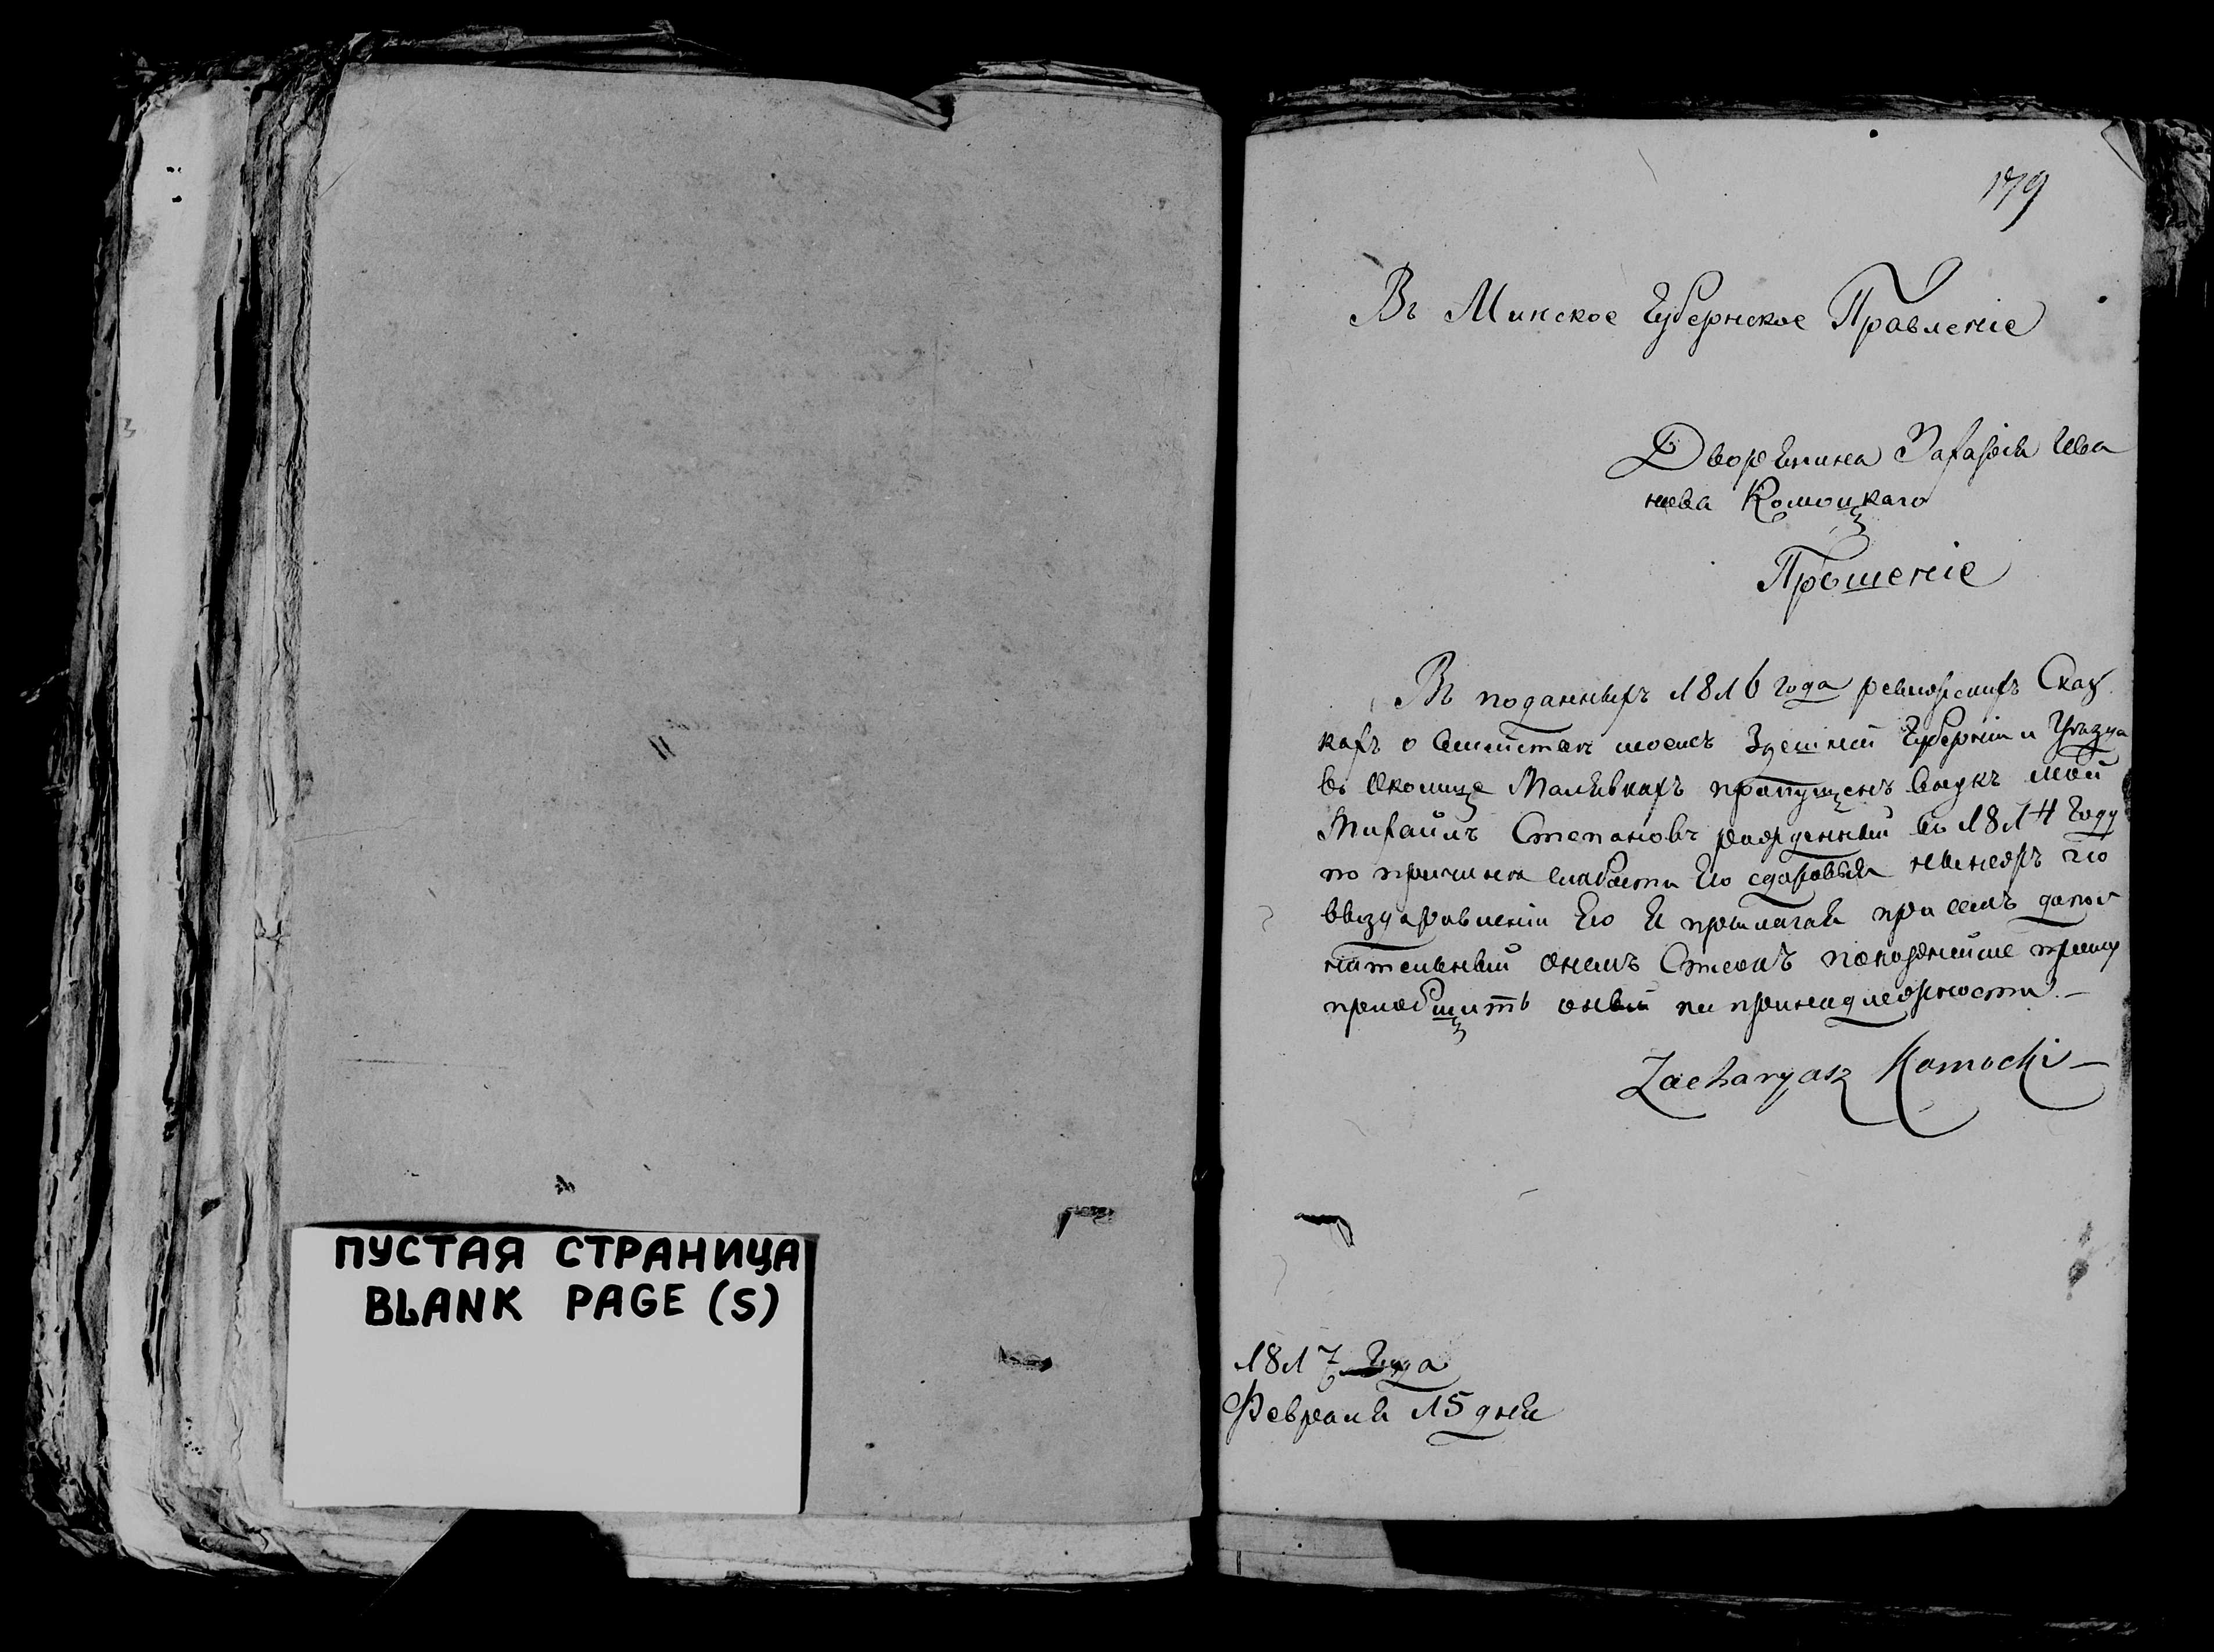 ПУСТАЯ СТРАНИЦА
BLANK PAGE (S)
179
Въ Минское Губернское Правление
Дворянина Захарья Ива
нова Комоцкаго
Прошение
Въ поданныхъ 1816 года ревизскихъ Сказ
кахъ о моемъ Здешней Губернии и Уезда
въ Околице пропущенъ внукъ мой
Михаилъ Степановъ рожденный въ 1814 Году
по причине слабости Его здоровья ныне жъ по
выздаровлении Его я прилагая при семъ допол
нительный онемъ покорнейше прошу
приобщить оный по принадлежности. –
Zacharyasz Komocki –
1817 Года
Февраля 15 дня